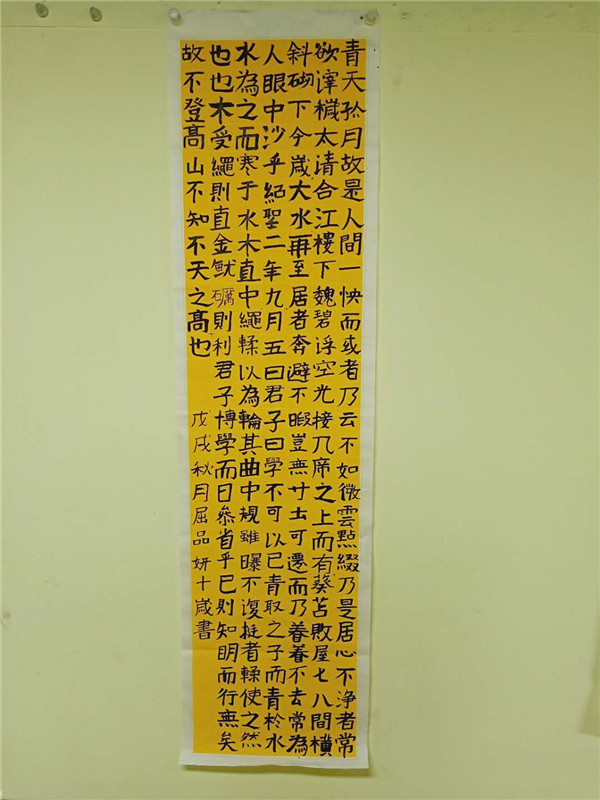 青天孤月故是人間一怏而或者乃云不如微雲點綴乃是居心不淨者常
欲滓穢太请合江樓下魏碧浮空光接几席之上而有葵苫敗屋七八間橫
斜砌下今歲大水再至居者奔避不暇豈無寸土可遷而乃眷眷不去常為
人眼中沙乎紹聖二年九月五日君子曰學不可以已青取之子而青於水
水為之而寒于水木直中繩輮以為輪其曲中規雖曝不復挺者輮使之然
也也木受繩則直金就礪則利君子博學而日參省乎已則知明而行無矣
故不登高山不知不天之高也
戊戌秋月屈品妍十歲書